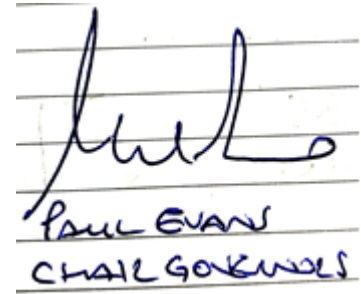 PAUL EVANS
CHAIR GOVERNORS